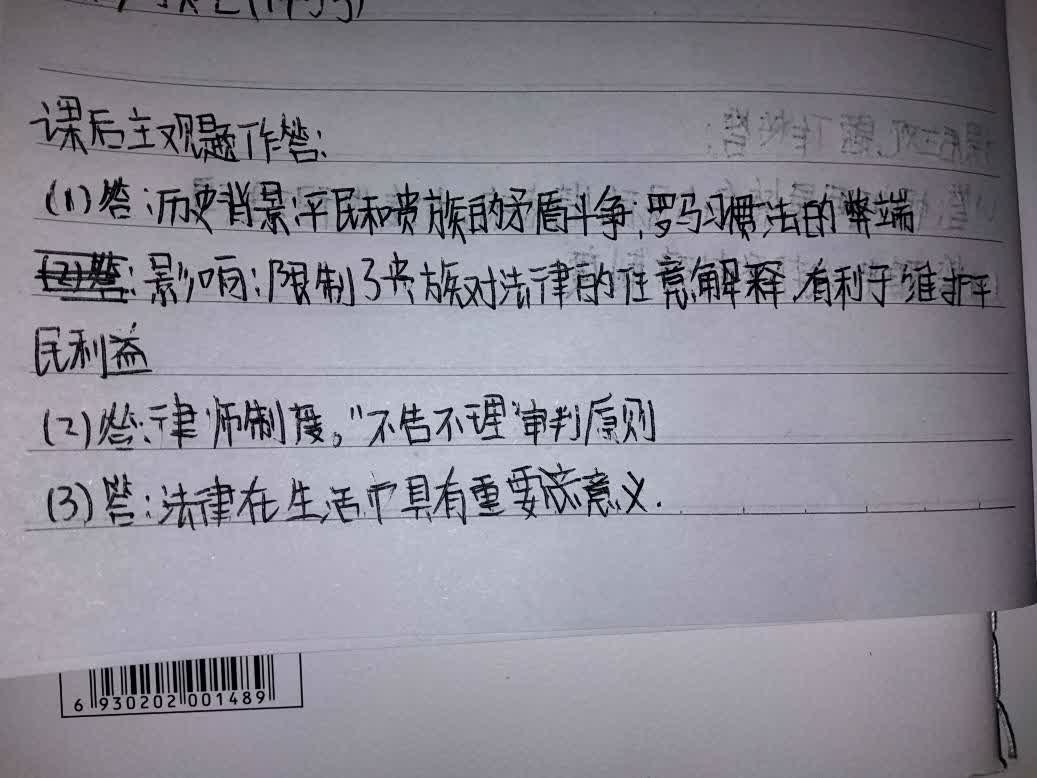 课后主观题作答:
(1)答:历史背景:平民和贵族的矛盾斗争;罗马习惯法的弊端
(2)答:影响:限制了贵族对法律的任意解释,有利于维护平
民利益
(2)答:律师制度。"不告不理"审判原则
(3)答:法律在生活中具有重要意义.
6 930202 001489